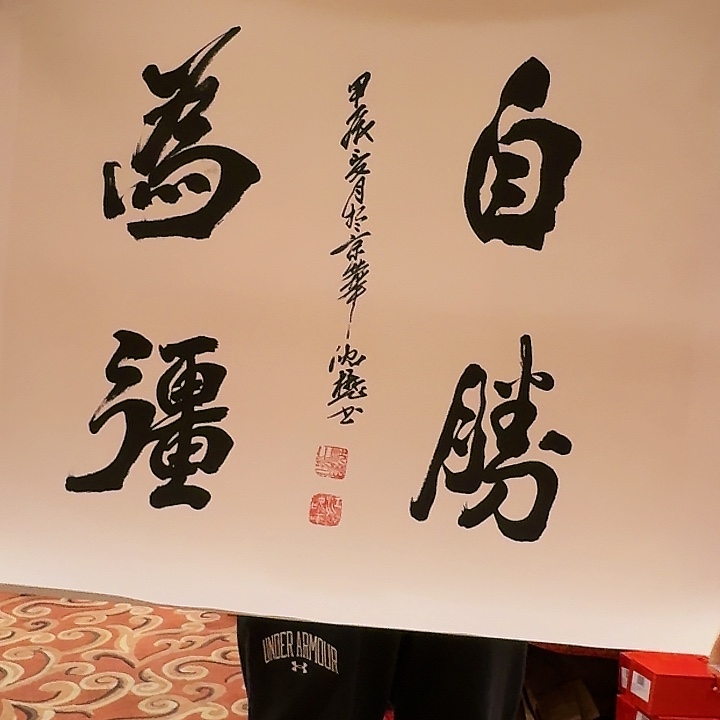 自勝
為彊
甲辰月於京華
書
UNDER ARMOUR